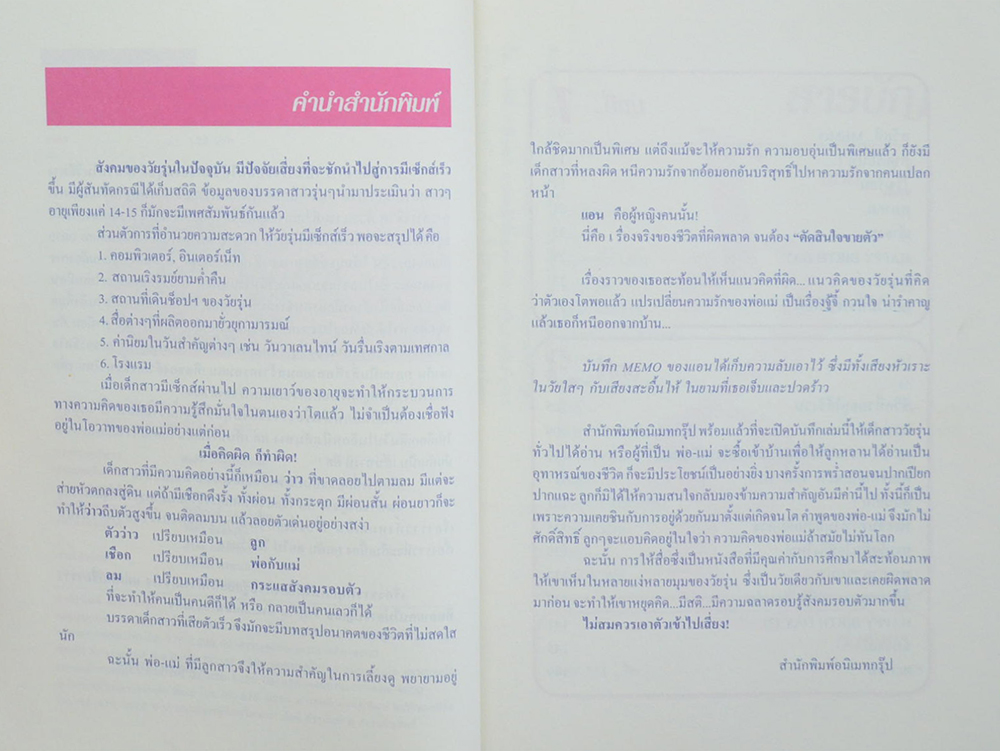 คำนำสำนักพิมพ์
สังคมของวัยรุ่นในปัจจุบัน มีปัจจัยเสี่ยงที่จะชักนำไปสู่การมีเซ็กส์เร็ว
ขึ้น มีผู้สันทัดกรณีได้เก็บสถิติ ข้อมูลของบรรดาสาวรุ่นๆนำมาประเมินว่า สาวๆ
อายุเพียงแค่ 14-15 ก็มักจะมีเพศสัมพันธ์กันแล้ว
ส่วนตัวการที่อำนวยความสะดวก ให้วัยรุ่นมีเซ็กส์เร็ว พอจะสรุปได้ คือ
1. คอมพิวเตอร์, อินเตอร์เน็ท
2. สถานเริงรมย์ยามค่ำคืน
3. สถานที่เดินช็อปฯ ของวัยรุ่น
4. สื่อต่างๆที่ผลิตออกมายั่วยุกามารมณ์
5. ค่านิยมในวันสำคัญต่างๆ เช่น วันวาเลนไทน์ วันรื่นเริงตามเทศกาล
6. โรงแรม
เมื่อเด็กสาวมีเซ็กส์ผ่านไป ความเยาว์ของอายุจะทำให้กระบวนการ
ทางความคิดของเธอมีความรู้สึกมั่นใจในตนเองว่าโตแล้ว ไม่จำเป็นต้องเชื่อฟัง
อยู่ในโอวาทของพ่อแม่อย่างแต่ก่อน
เมื่อคิดผิด ก็ทำผิด!
เด็กสาวที่มีความคิดอย่างนี้ก็เหมือน ว่าว ที่ขาดลอยไปตามลม มีแต่จะ
ส่ายหัวตกลงสู่ดิน แต่ถ้ามีเชือกดึงรั้ง ทั้งผ่อน ทั้งกระตุก มีผ่อนสั้น ผ่อนยาวก็จะ
ทำให้ว่าวถีบตัวสูงขึ้น จนติดลมบน แล้วลอยตัวเด่นอยู่อย่างสง่า
ตัวว่าว เปรียบเหมือน ลูก
เชือก เปรียบเหมือน พ่อกับแม่
ลม เปรียบเหมือน กระแสสังคมรอบตัว
ที่จะทำให้คนเป็นคนดีก็ได้ หรือ กลายเป็นคนเลวก็ได้
บรรดาเด็กสาวที่เสียตัวเร็ว จึงมักจะมีบทสรุปอนาคตของชีวิตที่ไม่สดใส
นัก
ฉะนั้น พ่อ-แม่ ที่มีลูกสาวจึงให้ความสำคัญในการเลี้ยงดู พยายามอยู่
ใกล้ชิดมากเป็นพิเศษ แต่ถึงแม้จะให้ความรัก ความอบอุ่นเป็นพิเศษแล้ว ก็ยังมี
เด็กสาวที่หลงผิด หนีความรักจากอ้อมอกอันบริสุทธิ์ไปหาความรักจากคนแปลก
หน้า
แอน คือผู้หญิงคนนั้น!
นี่คือ เรื่องจริงของชีวิตที่ผิดพลาด จนต้อง “ตัดสินใจขายตัว”
เรื่องราวของเธอสะท้อนให้เห็นแนวคิดที่ผิด... แนวคิดของวัยรุ่นที่คิด
ว่าตัวเองโตพอแล้ว แปรเปลี่ยนความรักของพ่อแม่ เป็นเรื่องจู้จี้ กวนใจ น่ารำคาญ
แล้วเธอก็หนีออกจากบ้าน...
บันทึก MEMO ของแอนได้เก็บความลับเอาไว้ ซึ่งมีทั้งเสียงหัวเราะ
ในวัยใสๆ กับเสียงสะอื้นไห้ ในยามที่เธอเจ็บและปวดร้าว
สำนักพิมพ์อนิเมทกรุ๊ป พร้อมแล้วที่จะเปิดบันทึกเล่มนี้ให้เด็กสาววัยรุ่น
ทั่วไปได้อ่าน หรือผู้ที่เป็น พ่อ-แม่ จะซื้อเข้าบ้านเพื่อให้ลูกหลานได้อ่านเป็น
อุทาหรณ์ของชีวิต ก็จะมีประโยชน์เป็นอย่างยิ่ง บางครั้งการพร่ำสอนจนปากเปียก
ปากแฉะ ลูกก็มิได้ให้ความสนใจกลับมองข้ามความสำคัญอันมีค่านี้ไป ทั้งนี้ก็เป็น
เพราะความเคยชินกับการอยู่ด้วยกันมาตั้งแต่เกิดจนโต คำพูดของพ่อ-แม่ จึงมักไม่
ศักดิ์สิทธิ์ ลูกๆจะแอบคิดอยู่ในใจว่า ความคิดของพ่อแม่ล้าสมัยไม่ทันโลก
ฉะนั้น การให้สื่อซึ่งเป็นหนังสือที่มีคุณค่ากับการศึกษาได้สะท้อนภาพ
ให้เขาเห็นในหลายแง่หลายมุมของวัยรุ่น ซึ่งเป็นวัยเดียวกับเขาและเคยผิดพลาด
มาก่อน จะทำให้เขาหยุดคิด...มีสติ...มีความฉลาดรอบรู้สังคมรอบตัวมากขึ้น
ไม่สมควรเอาตัวเข้าไปเสี่ยง!
สำนักพิมพ์อนิเมทกรุ๊ป